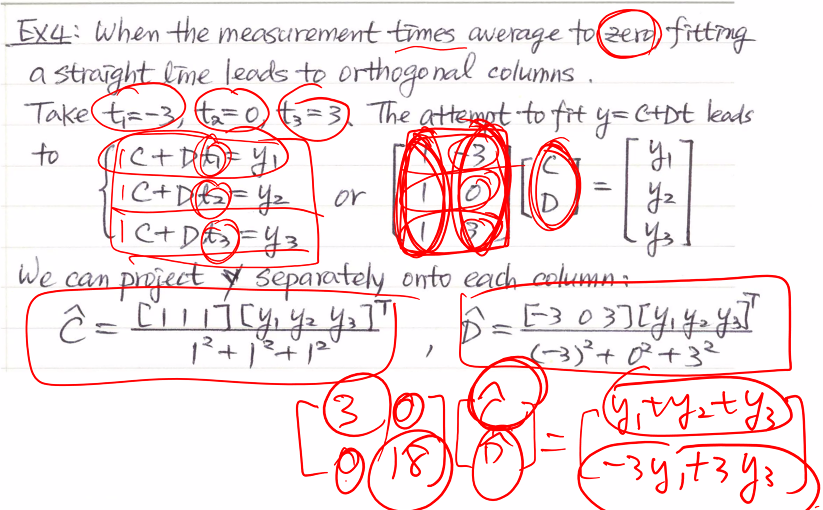 Ex4: When the measurement times average to zero fitting
a straight line leads to orthogonal columns.
Take t₁=-3, t₂=0, t₃=3. The attempt to fit y=C+Dt leads
to { 1C+Dt₁=y₁ 1C+Dt₂=y₂ 1C+Dt₃=y₃ or [1 -3; 1 0; 1 3] [C; D] = [y₁; y₂; y₃]
We can project y separately onto each column:
Ĉ = [1 1 1][y₁ y₂ y₃]ᵀ / 1²+1²+1² , D̂ = [-3 0 3][y₁ y₂ y₃]ᵀ / (-3)²+0²+3²
[3 0; 0 18] [Ĉ; D̂] = [y₁+y₂+y₃; -3y₁+3y₃]